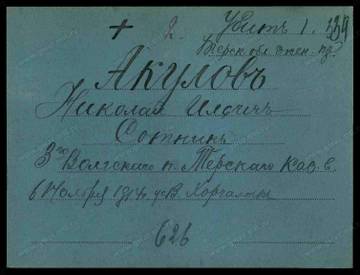 + 2. Убитъ 1. 139
Терск обл
Акуловъ
Николай Ильичъ
Сотникъ
3го Волгскаго п. Терскаго каз. в.
6 Ноября 1914 у Хоргалты
626